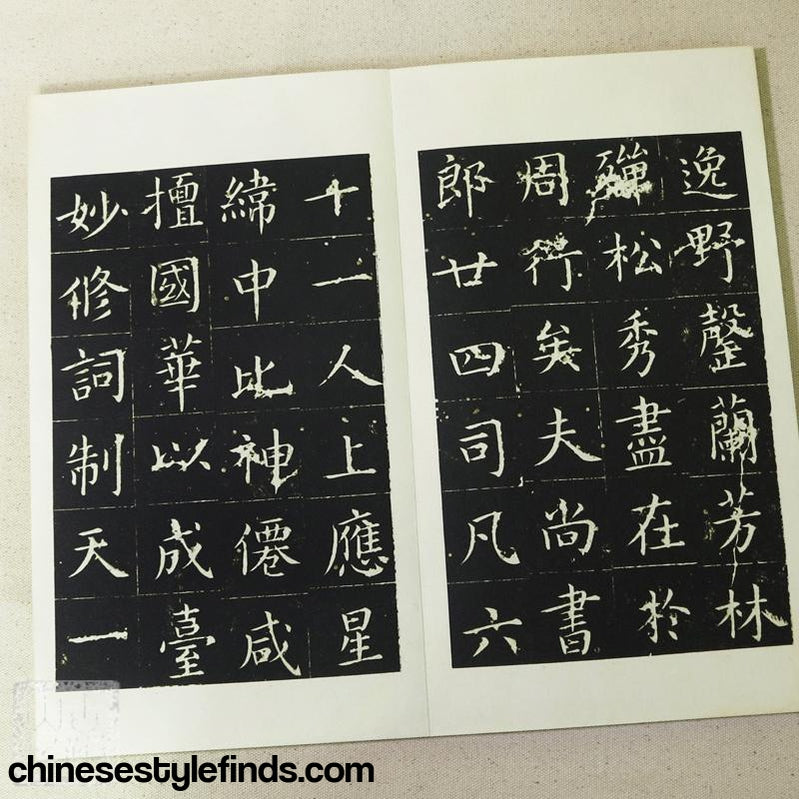 逸野罄蘭芳林
殫松秀盡在扵
周行矣夫尚書
郎廿四司凡六
十一人上應星
緯中比神僊咸
擅國華以成臺
妙脩詞制天一
chinesestylefinds.com